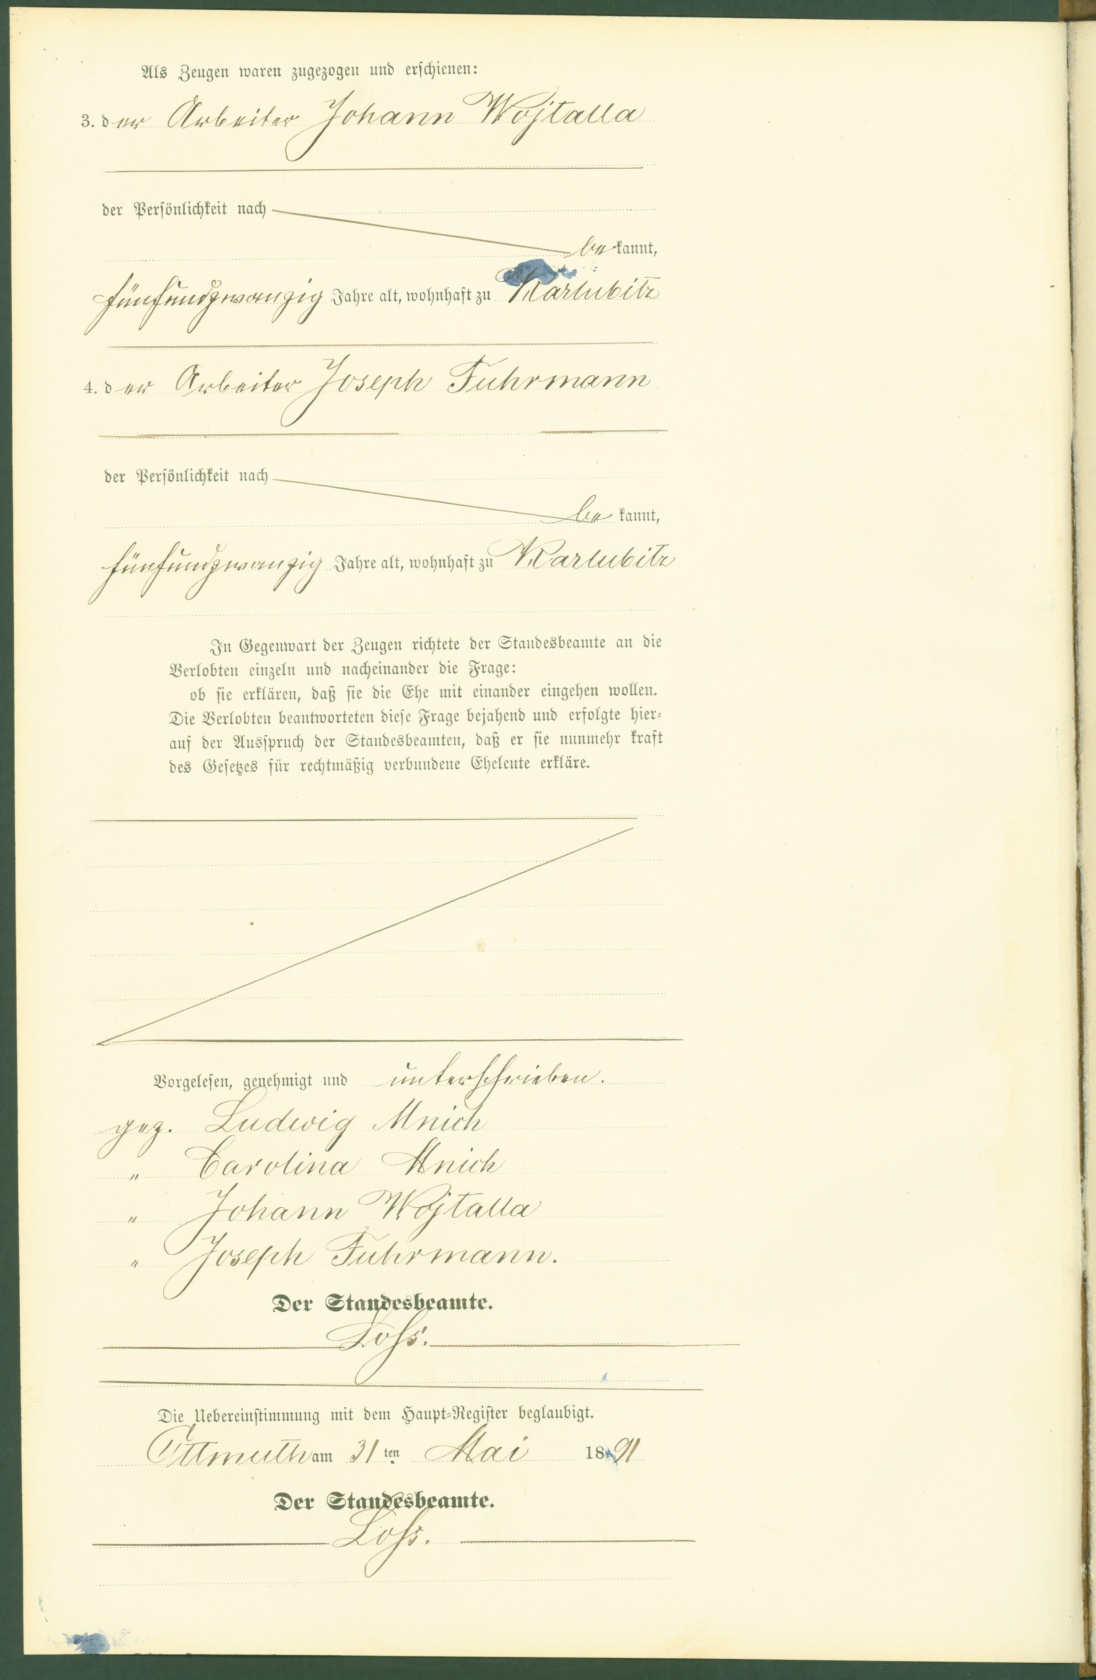 Als Zeugen waren zugezogen und erschienen:
3. der Arbeiter Johann Wojtalla
der Persönlichkeit nach
bekannt,
fünfundzwanzig Jahre alt, wohnhaft zu Karlubitz
4. der Arbeiter Joseph Fuhrmann
der Persönlichkeit nach
bekannt,
fünfundzwanzig Jahre alt, wohnhaft zu Karlubitz
In Gegenwart der Zeugen richtete der Standesbeamte an die
Verlobten einzeln und nacheinander die Frage:
ob sie erklären, daß sie die Ehe mit einander eingehen wollen.
Die Verlobten beantworteten diese Frage bejahend und erfolgte hier-
auf der Ausspruch der Standesbeamten, daß er sie nunmehr kraft
des Gesetzes für rechtmäßig verbundene Eheleute erkläre.
Vorgelesen, genehmigt und unterschrieben.
gez. Ludwig Mnich
" Carolina Mnich
" Johann Wojtalla
" Joseph Fuhrmann.
Der Standesbeamte.
Loss.
Die Uebereinstimmung mit dem Haupt-Register beglaubigt.
Ottmuth am 31 ten Mai 1891
Der Standesbeamte.
Loss.